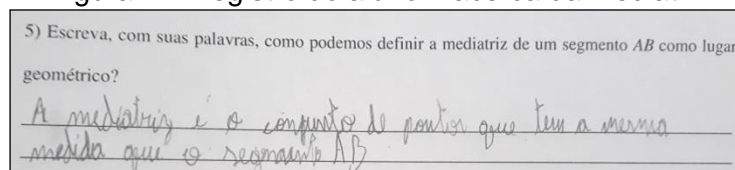 5) Escreva, com suas palavras, como podemos definir a mediatriz de um segmento AB como lugar
geométrico?
A mediatriz é o conjunto de pontos que tem a mesma
medida que o segmento AB